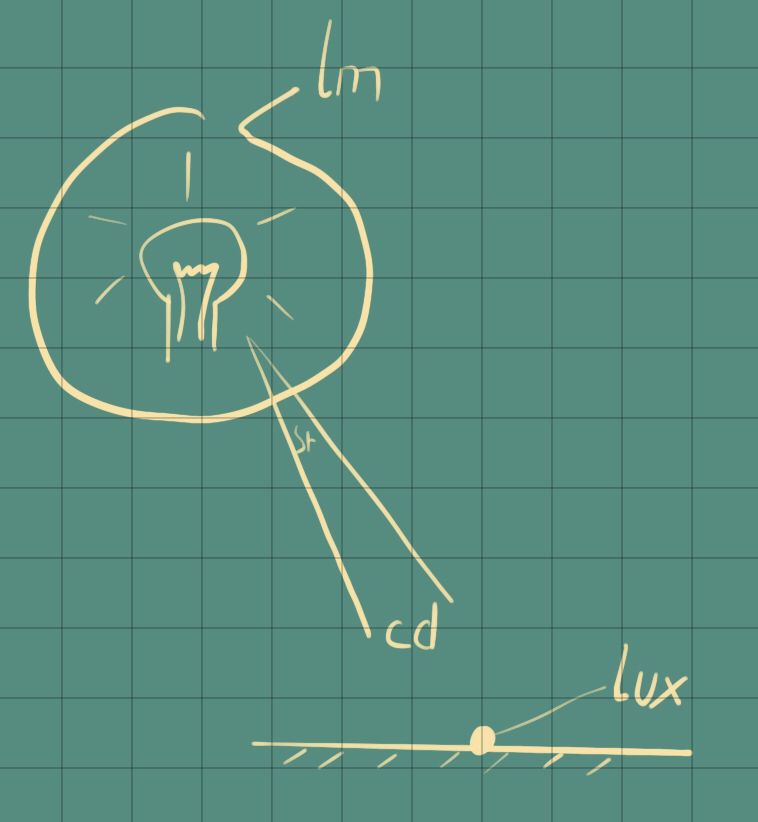 lm
sr
cd
lux